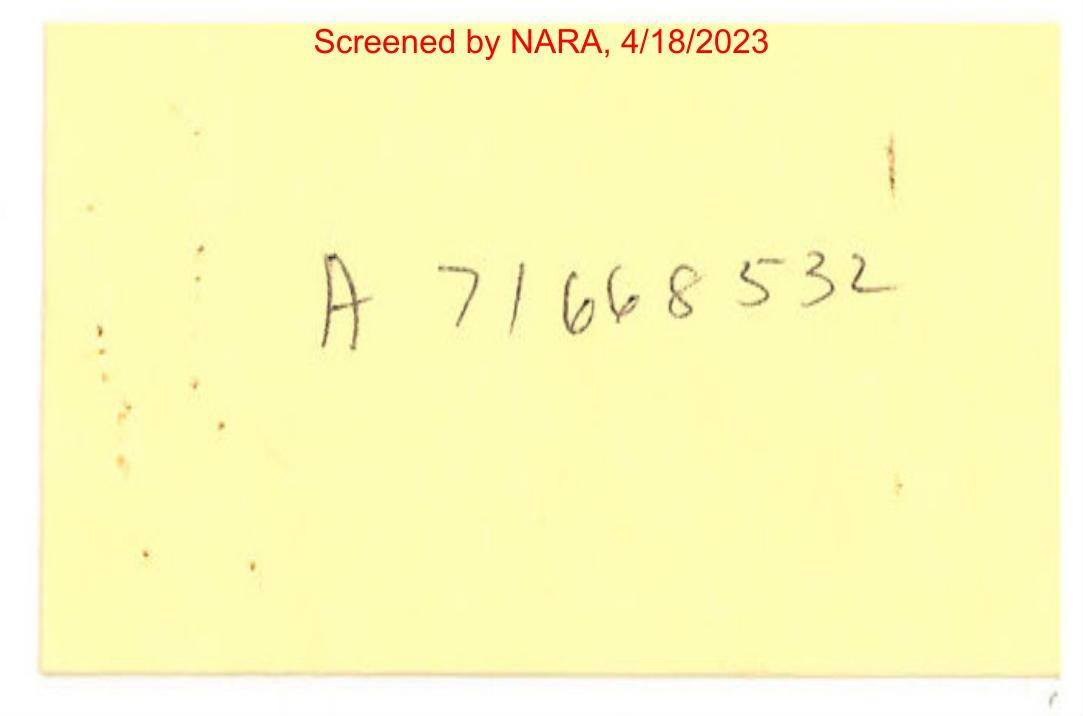 Screened by NARA, 4/18/2023
A 71668532